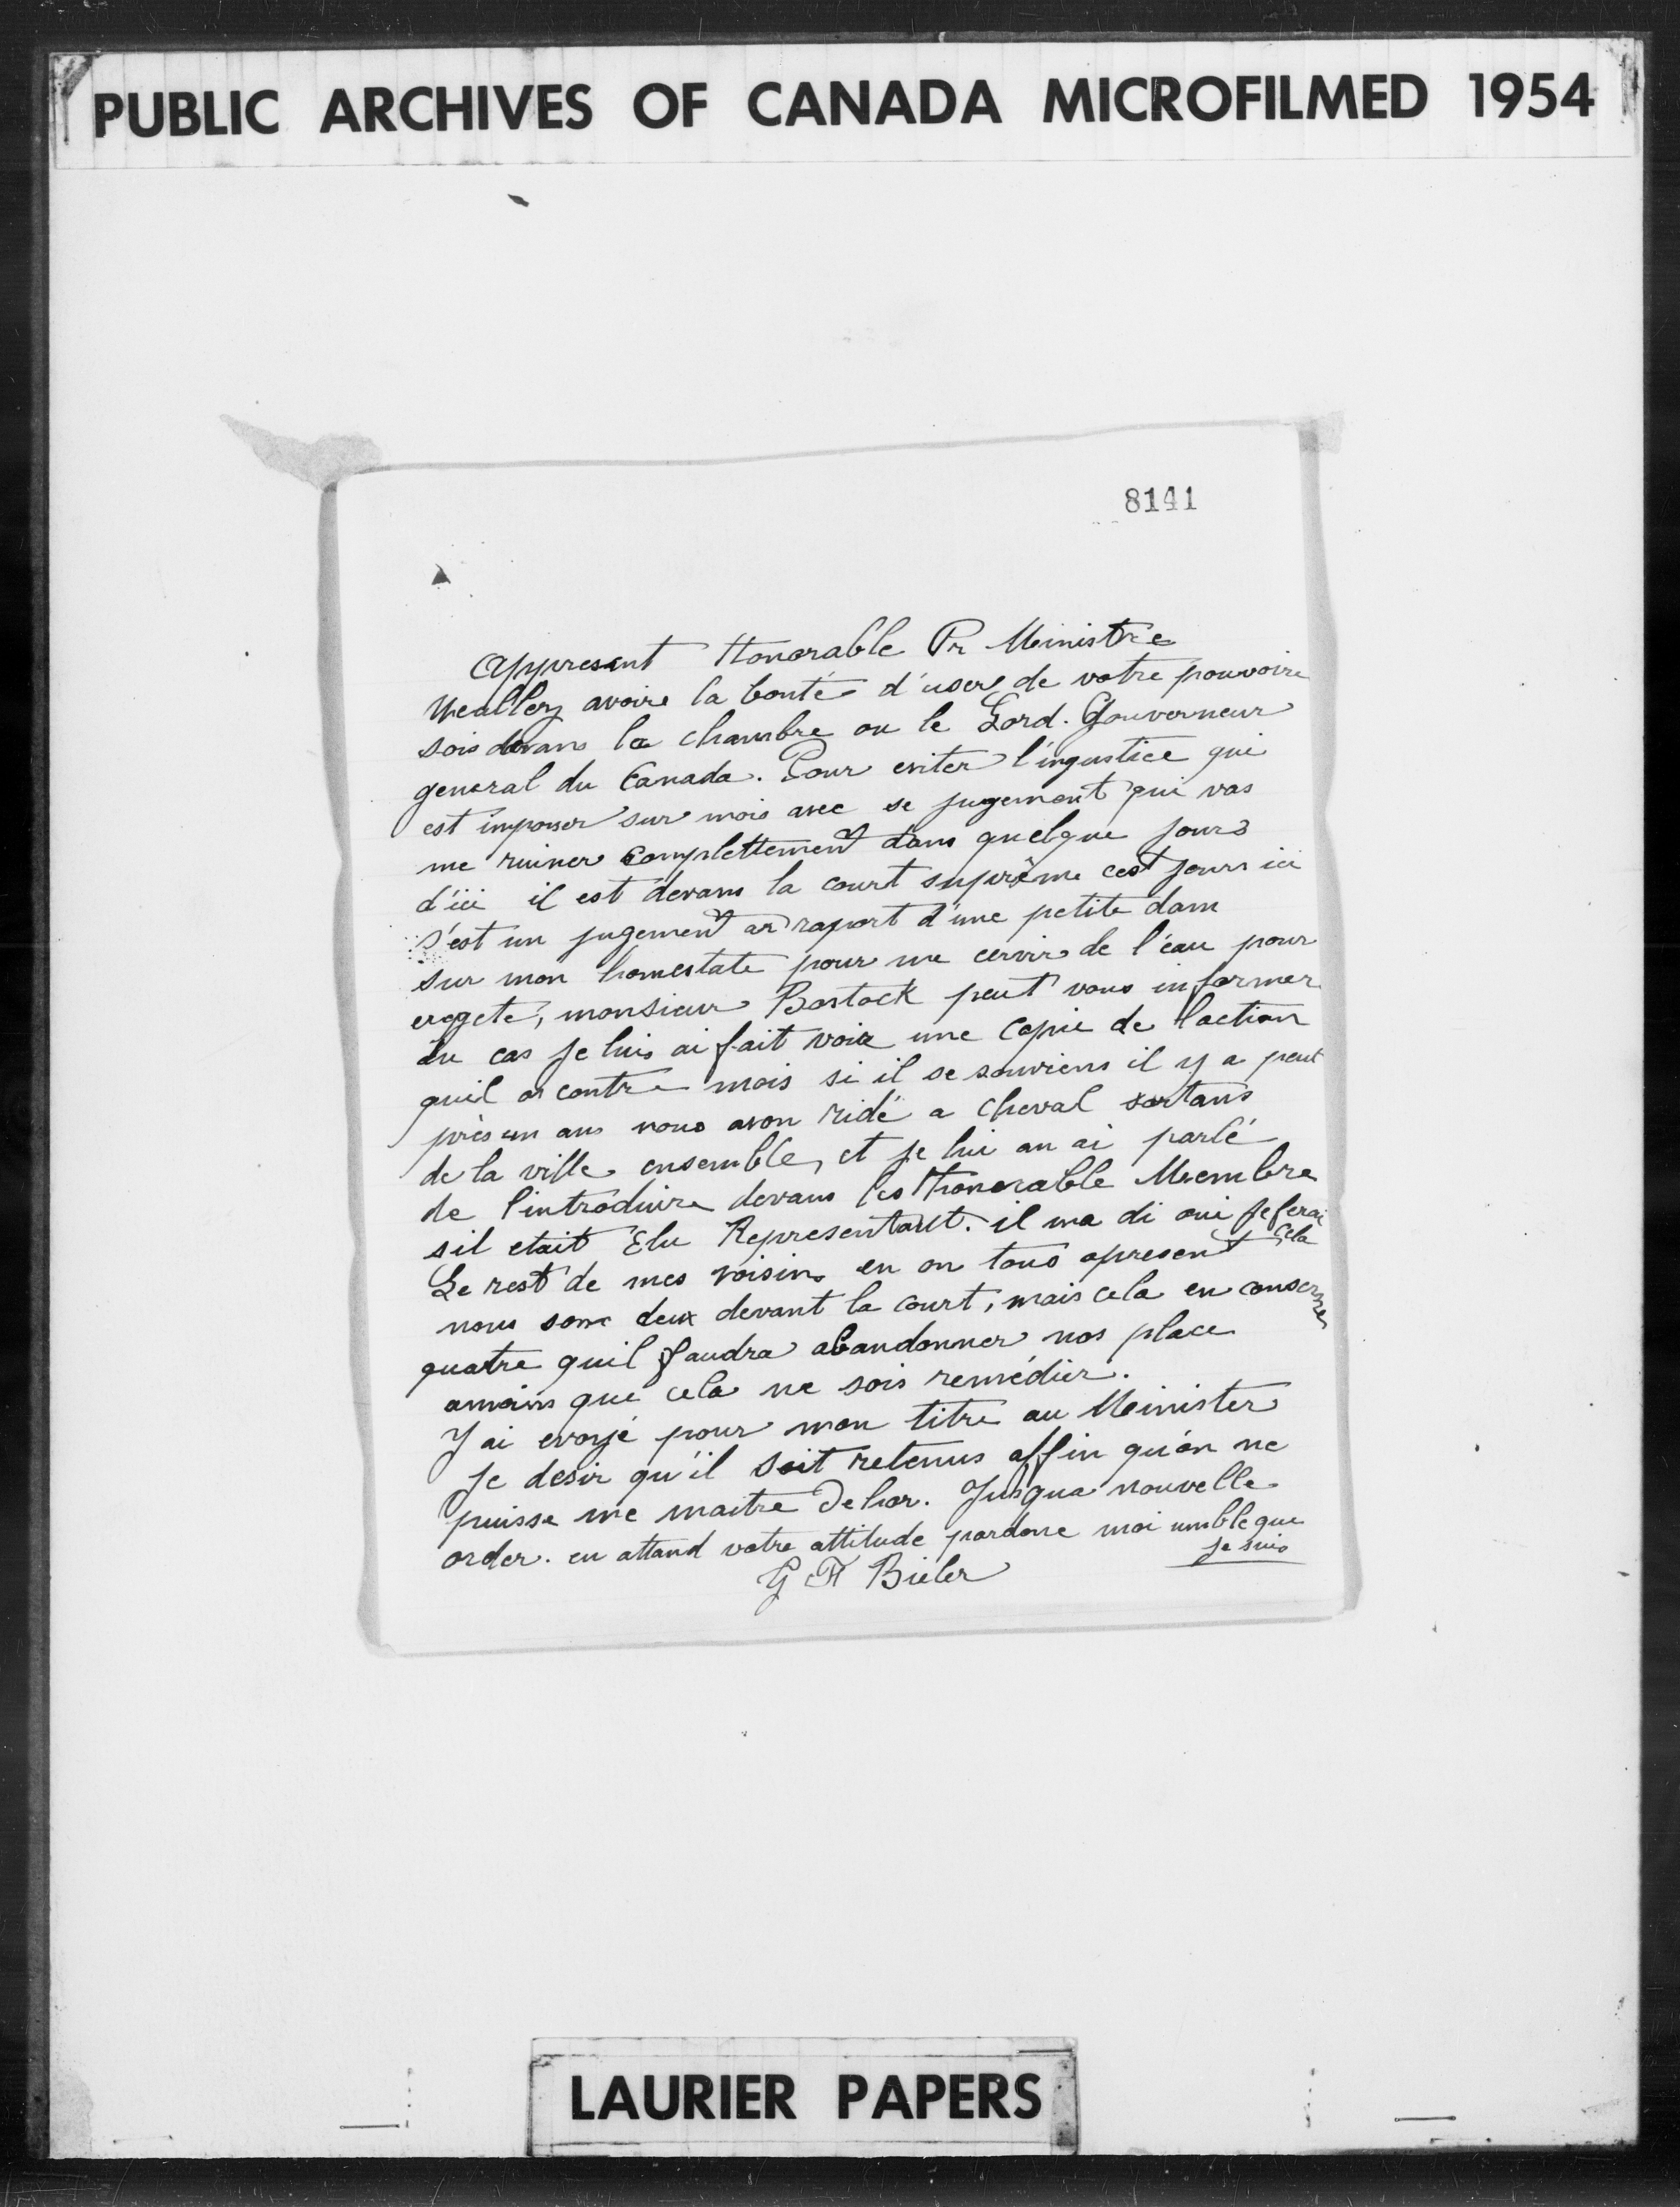 PUBLIC ARCHIVES OF CANADA MICROFILMED 1954
8141
Appresent Honorable Pr Ministre
Veulley avoire la bonté d'user de votre pouvoire
sois devans la chambre ou le Lord. Gouverneur
general du Canada. Pour eviter l'ingustice qui
est imposer sur mois avec se jugement qui vas
me ruiner complettement dans quelque jours
d'ici il est devans la court suprême cest jours ici
s'est un jugement ar raport d'une petite dam
sur mon homestate pour me cervir de l'éau pour
eregete, monsieur Bostock peut vous informer
du cas Je luis ai fait voir une copie de laction
quil a contre mois si il se souviens il y a peut
près un ans nous avon ridé a cheval sortans
de la ville ensemble, et je lui an ai parlé
de l'introduire devans les Honorable Membre
sil etait Elu Representant. il ma di oui Je ferai
cela
Le rest de mes voisins en on tous apresent
nous some deux devant la court, mais cela en conserne
quatre quil faudra abandonner nos place
amoins que cela ne sois remédier.
J ai evoyé pour mon titre au Minister
Je desir qu'il soit retenus affin qu'on ne
puisse me maitre dehor. Jusqua nouvelle
order. en attand votre attitude pardone moi umble que
Je suis
G F Bieler
LAURIER PAPERS